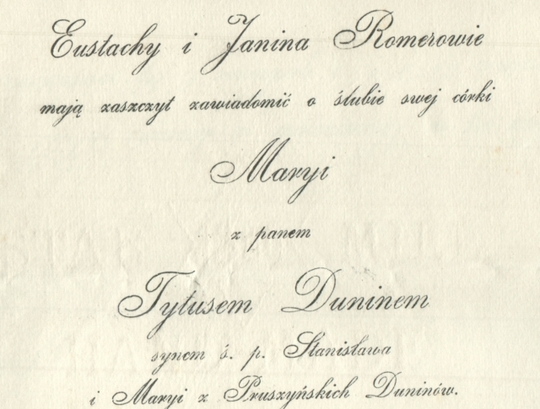 Eustachy i Janina Romerowie
mają zaszczyt zawiadomić o ślubie swej córki
Maryi
z panem
Tytusem Duninem
synem ś. p. Stanisława
i Maryi z Pruszyńskich Duninów.